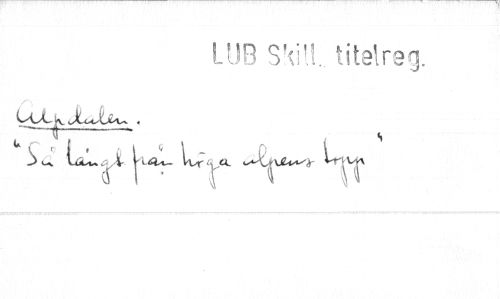 LUB Skill. titelreg.
Alpdalen.
"Så långt från höga alpens topp"